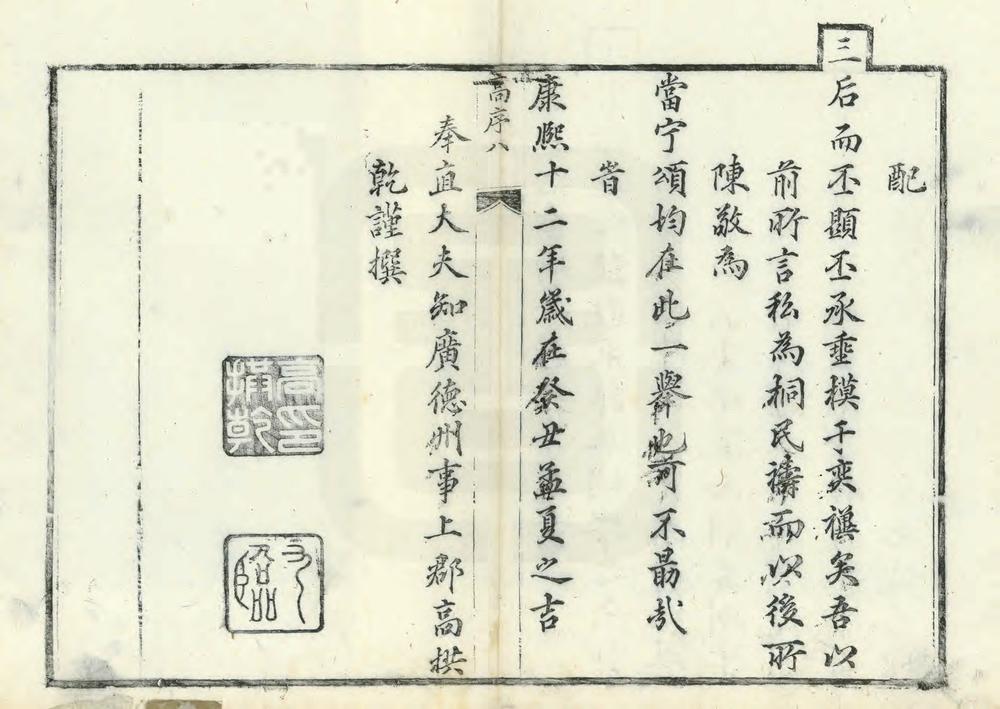 配
三后而丕顯丕承垂模千奕禩矣吾以
前所言私為桐民禱而以後所
陳敬為
當宁頌均在此一舉也可不勗哉
旹
康熙十二年歲在癸丑孟夏之吉
高序八
奉直大夫知廣德州事上郡高拱
乾謹撰
高拱乾印
九臨